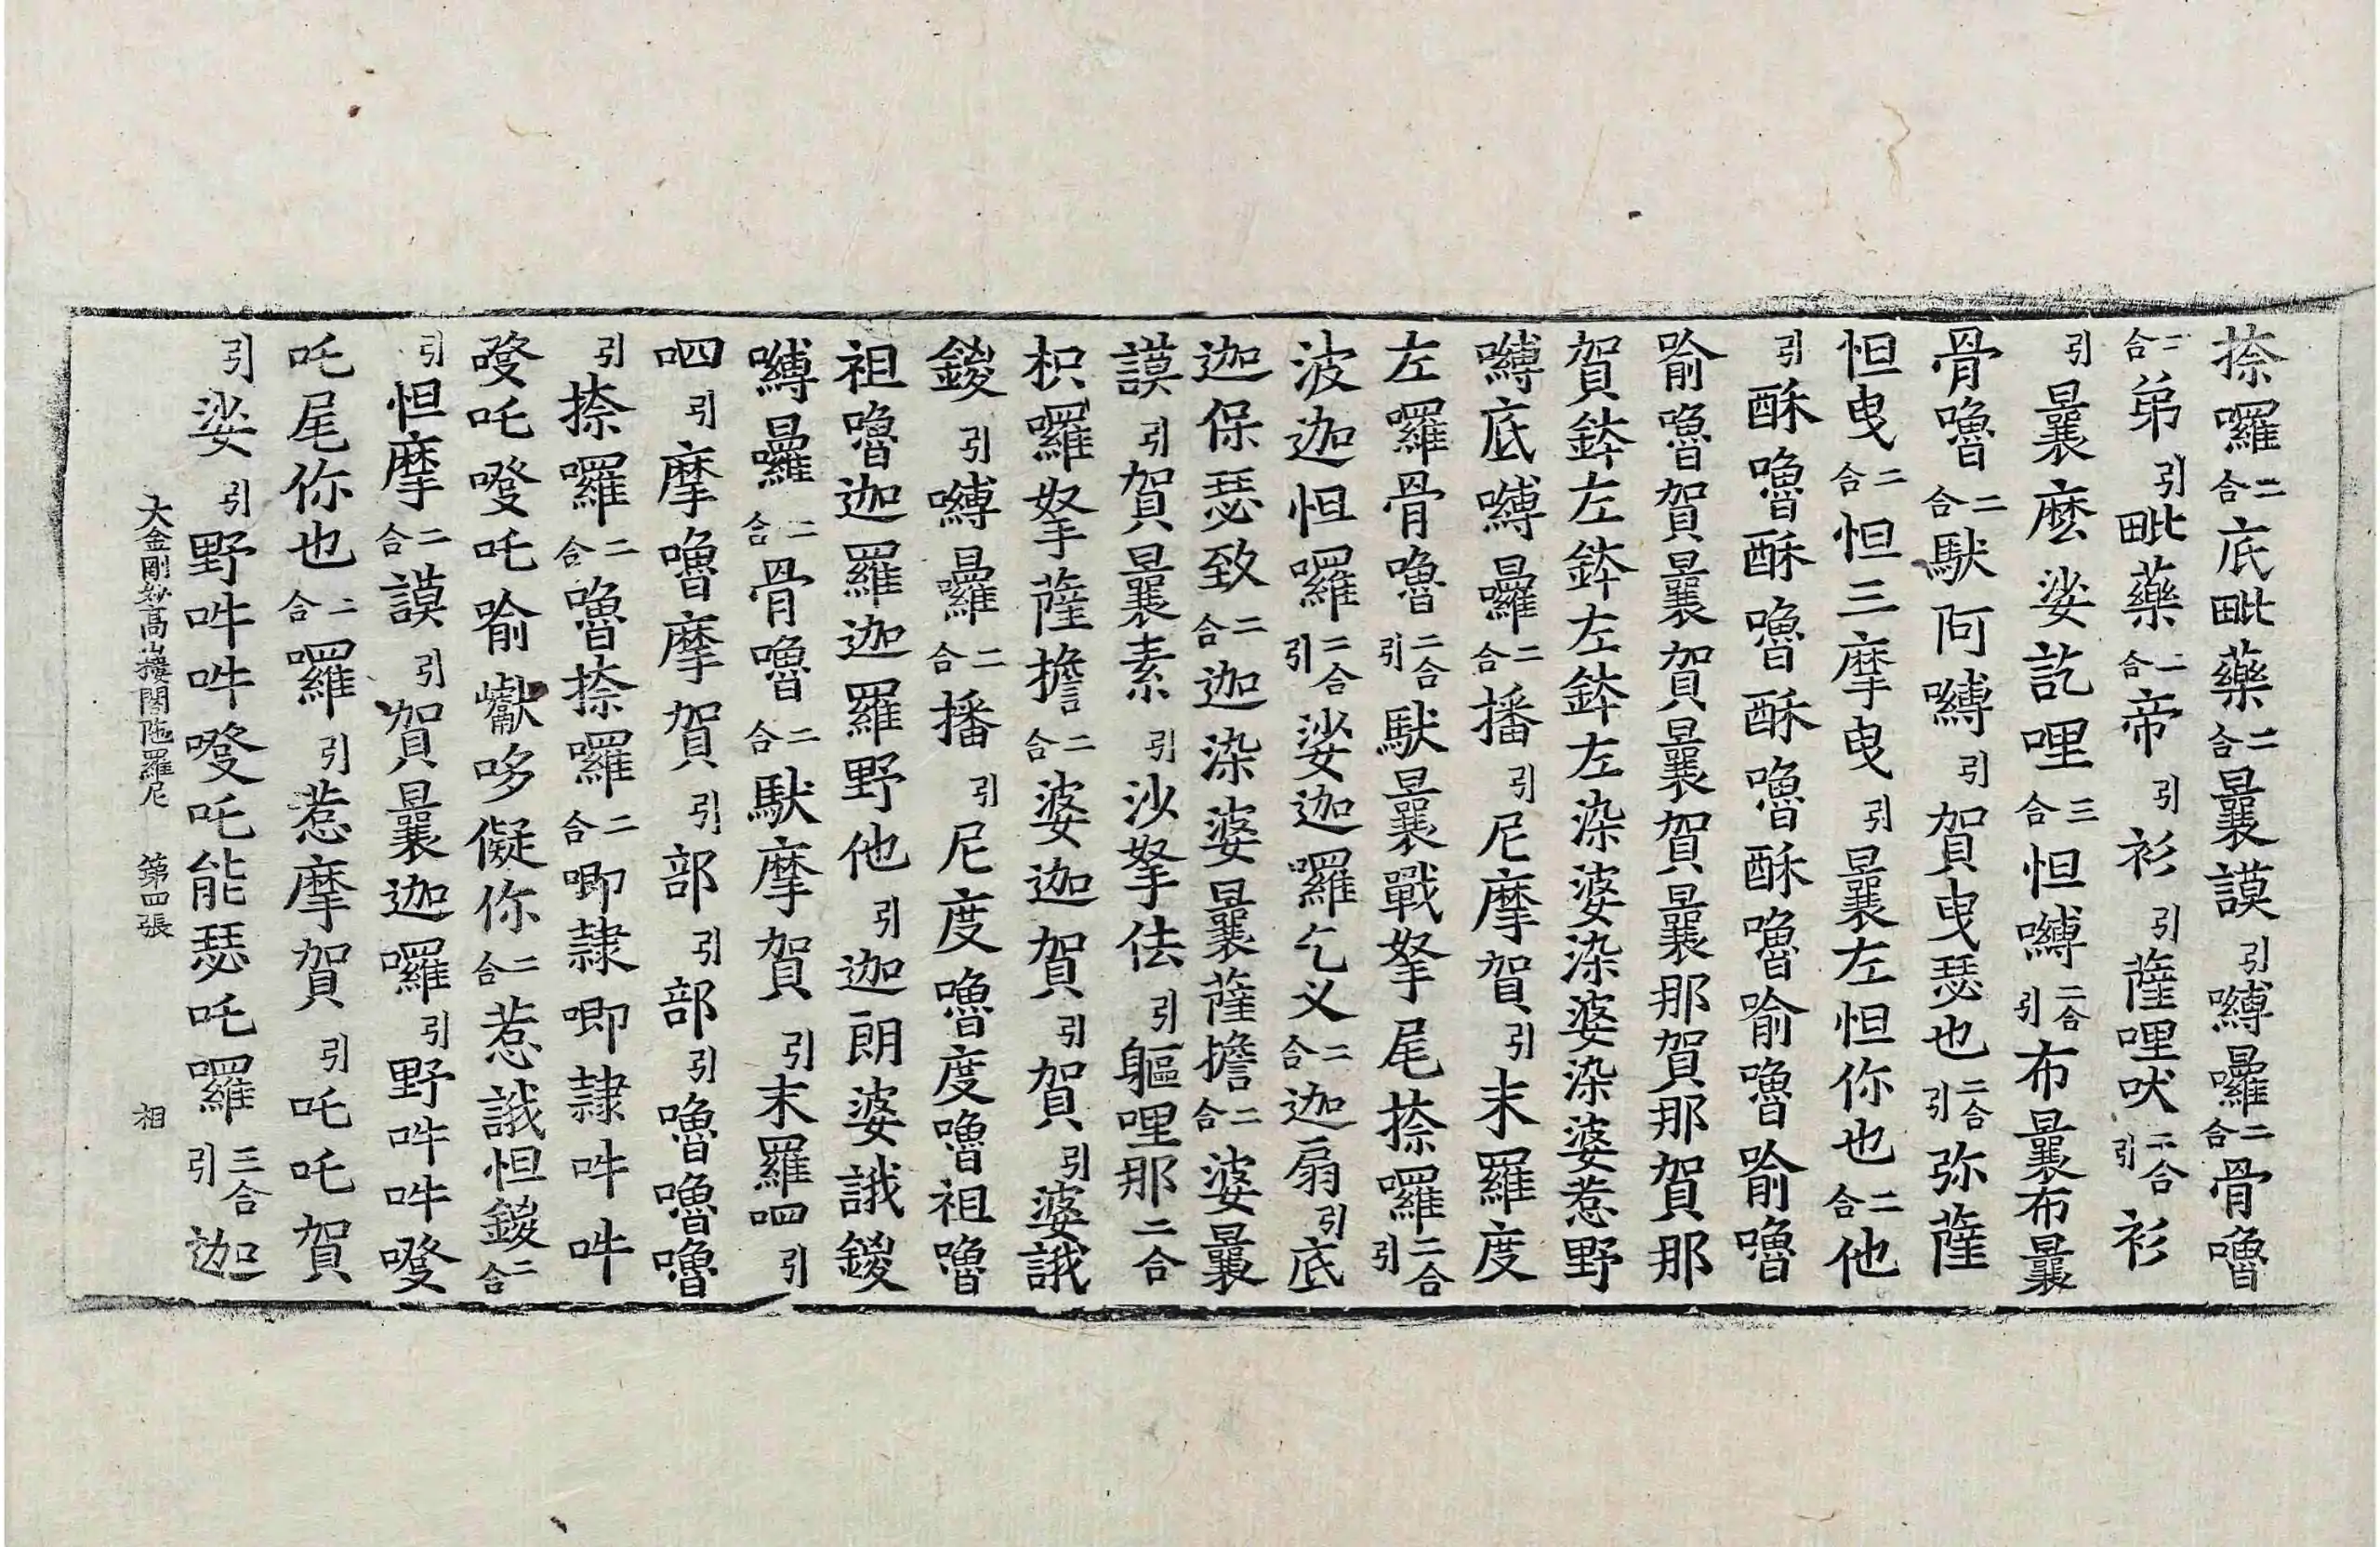 捺囉二合底毗藥二合曩謨引嚩囉二合骨嚕
二合弟引毗藥二合帝引衫引薩哩吠二合引衫
引曩麽娑訖哩三合怛嚩二合引布曩布曩
骨嚕二合馱阿嚩引賀曳瑟也二合引弥薩
怛曳二合怛三摩曳引曩左怛你也二合他
引酥嚕酥嚕酥嚕酥嚕喻嚕喻嚕
喻嚕賀曩賀曩賀曩那賀那賀那
賀鉢左鉢左鉢左染婆染婆染婆惹野
嚩底嚩囉二合播引尼摩賀引末羅度
左囉骨嚕二合引馱曩戰拏尾捺囉二合引
波迦怛囉二合引娑迦囉乞义二合迦扇引底
迦保瑟致二合迦染婆曩薩擔二合婆曩
謨引賀曩素引沙拏佉引軀哩那二合
枳囉拏薩擔二合婆迦賀引賀引婆誐
鍐引嚩囉二合播引尼度嚕度嚕祖嚕
祖嚕迦羅迦羅野他引迦朗婆誐鍐
嚩囉二合骨嚕二合馱摩賀引末羅呬引
呬引摩嚕摩賀引部引部引嚕嚕嚕
引捺囉二合嚕捺囉二合唧隸唧隸吽吽
㗳吒㗳吒喻巘哆儗你二合惹誐怛鍐二合
引怛摩二合謨引賀曩迦囉引野吽吽㗳
吒尾你也二合羅引惹摩賀引吒吒賀
引娑引野吽吽㗳吒能瑟吒羅三合引迦
大金剛妙高山樓閣陁羅尼 第四張 相